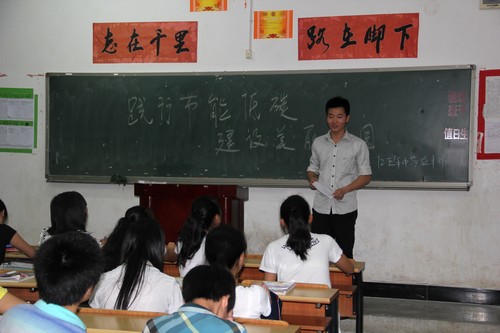 志在千里
路在脚下
践行节能低碳
建设美丽 国
值日生